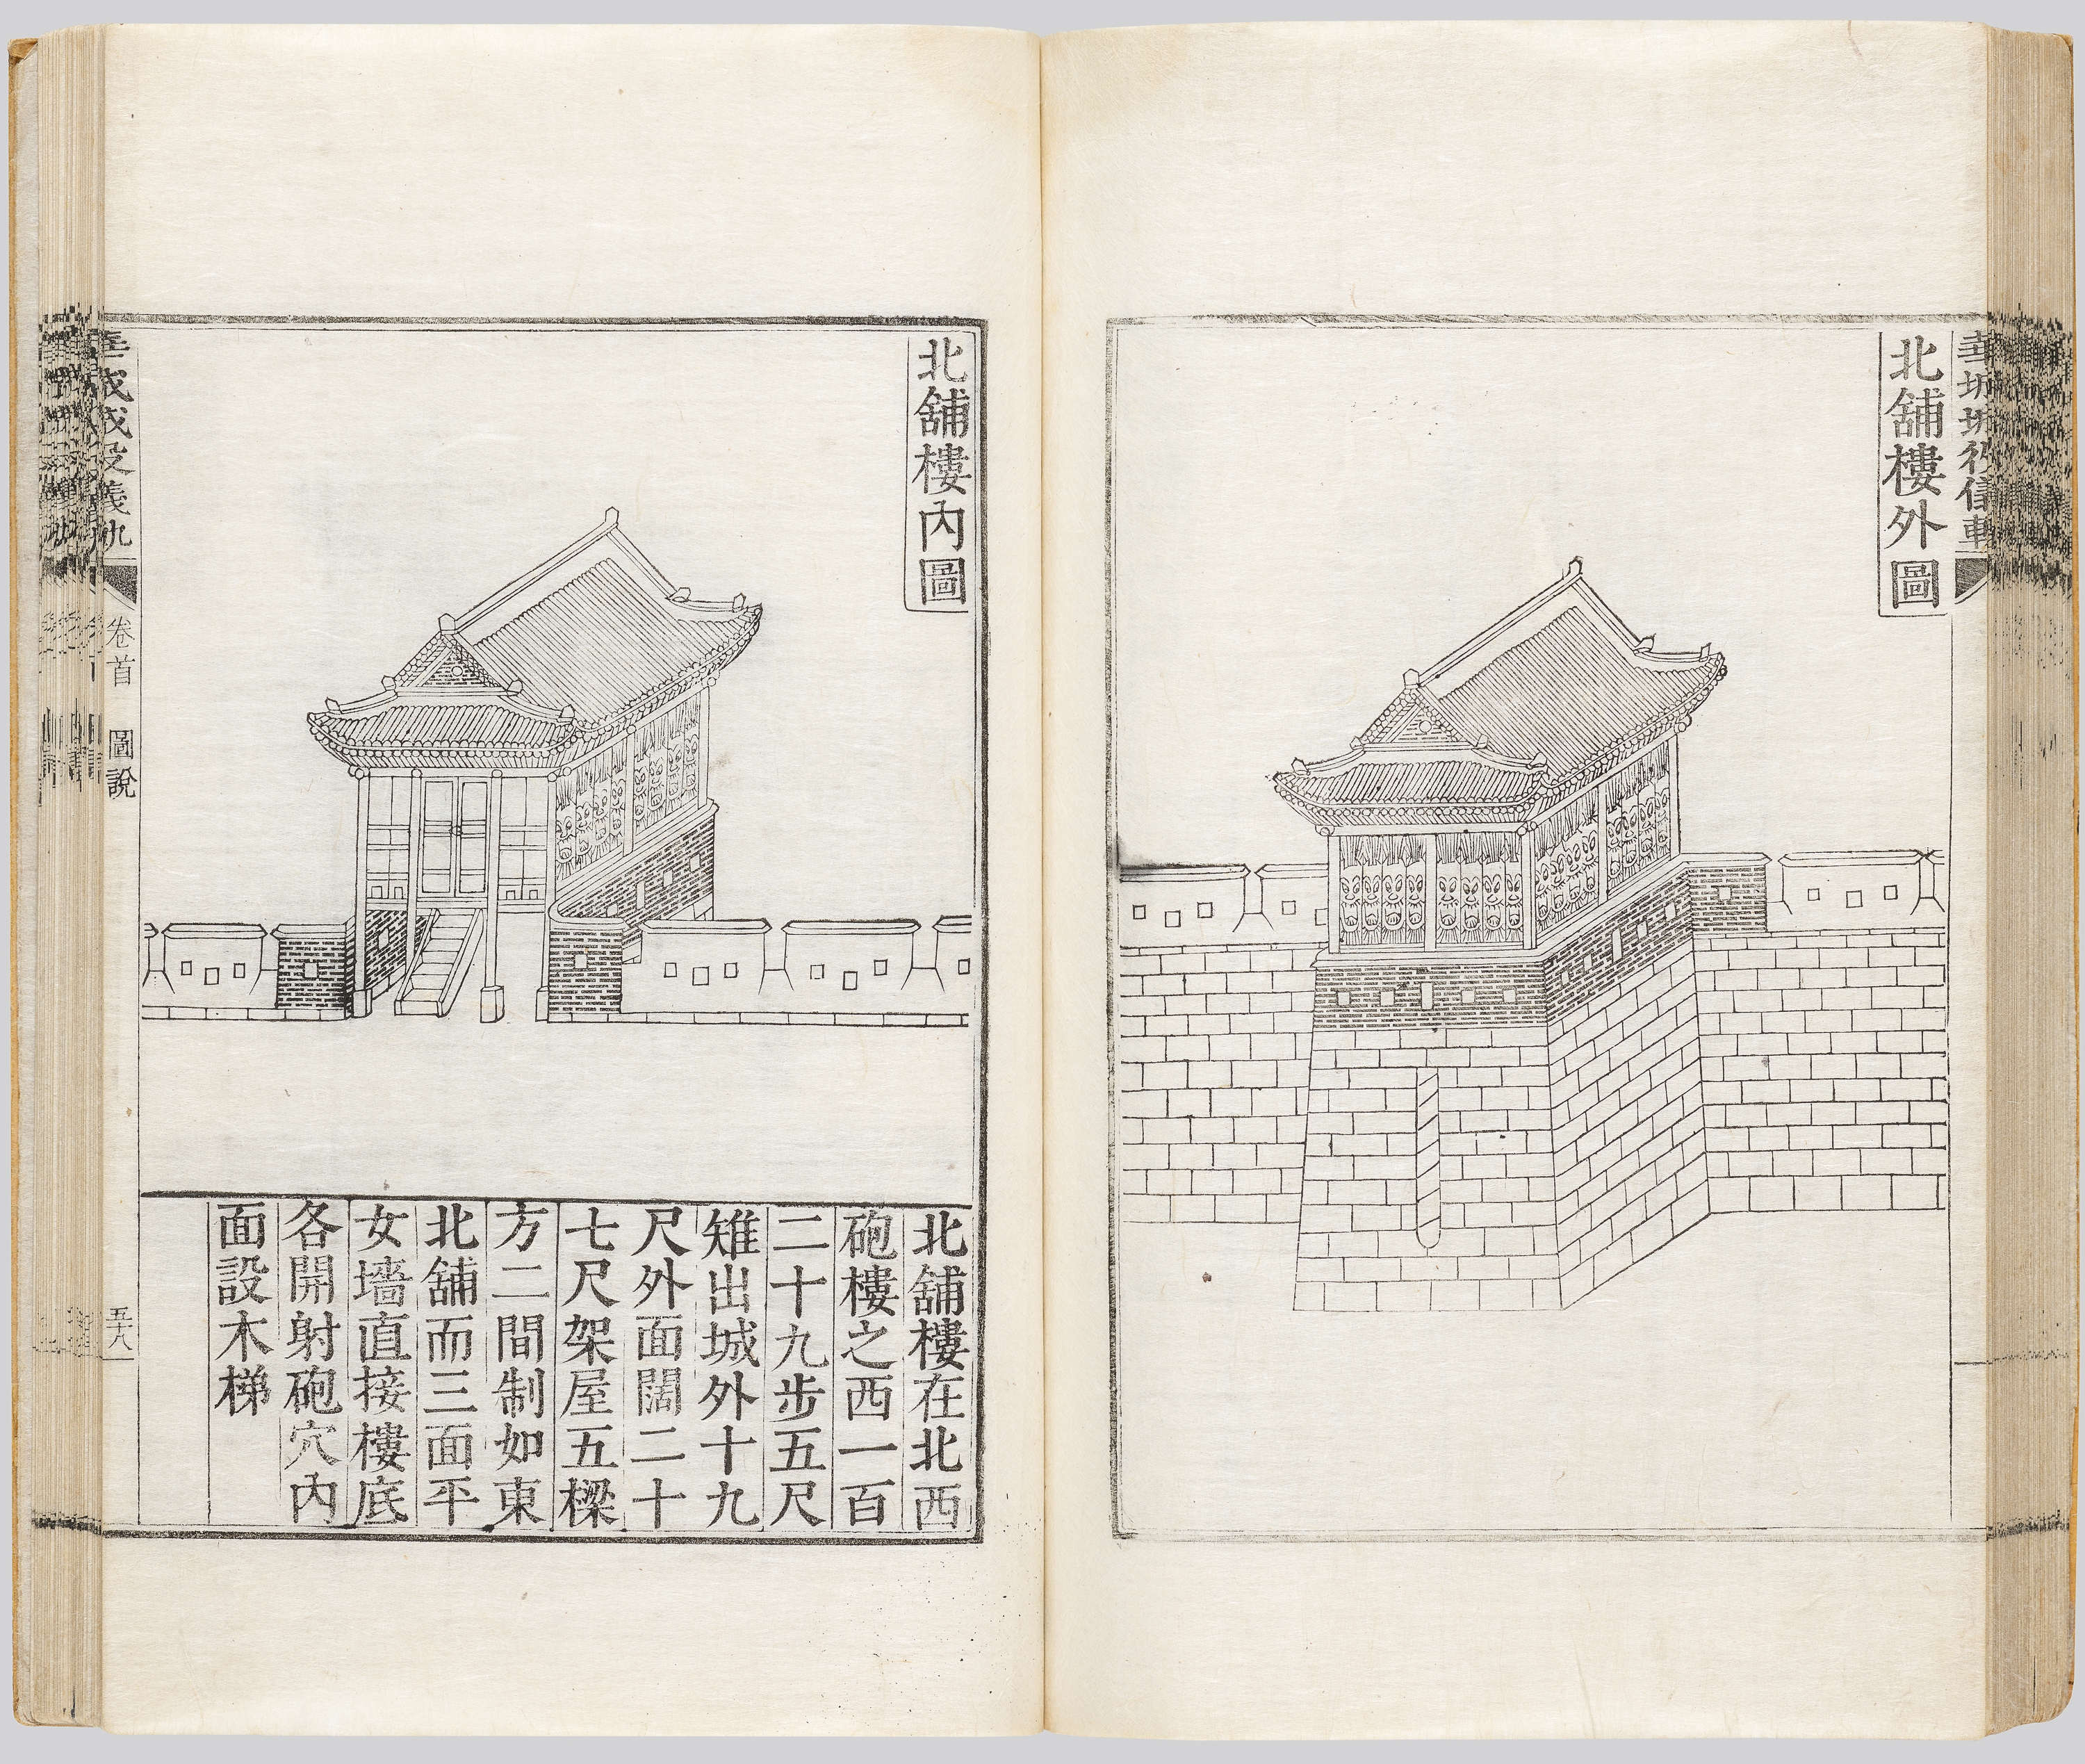 華城城役儀軌
北舖樓外圖
北舖樓內圖
北舖樓在北西
砲樓之西一百
二十九步五尺
雉出城外十九
尺外面闊二十
七尺架屋五樑
方二間制如東
北舖而三面平
女墻直接樓底
各開射砲穴內
面設木梯
華城城役儀軌
卷首
圖說
五十八